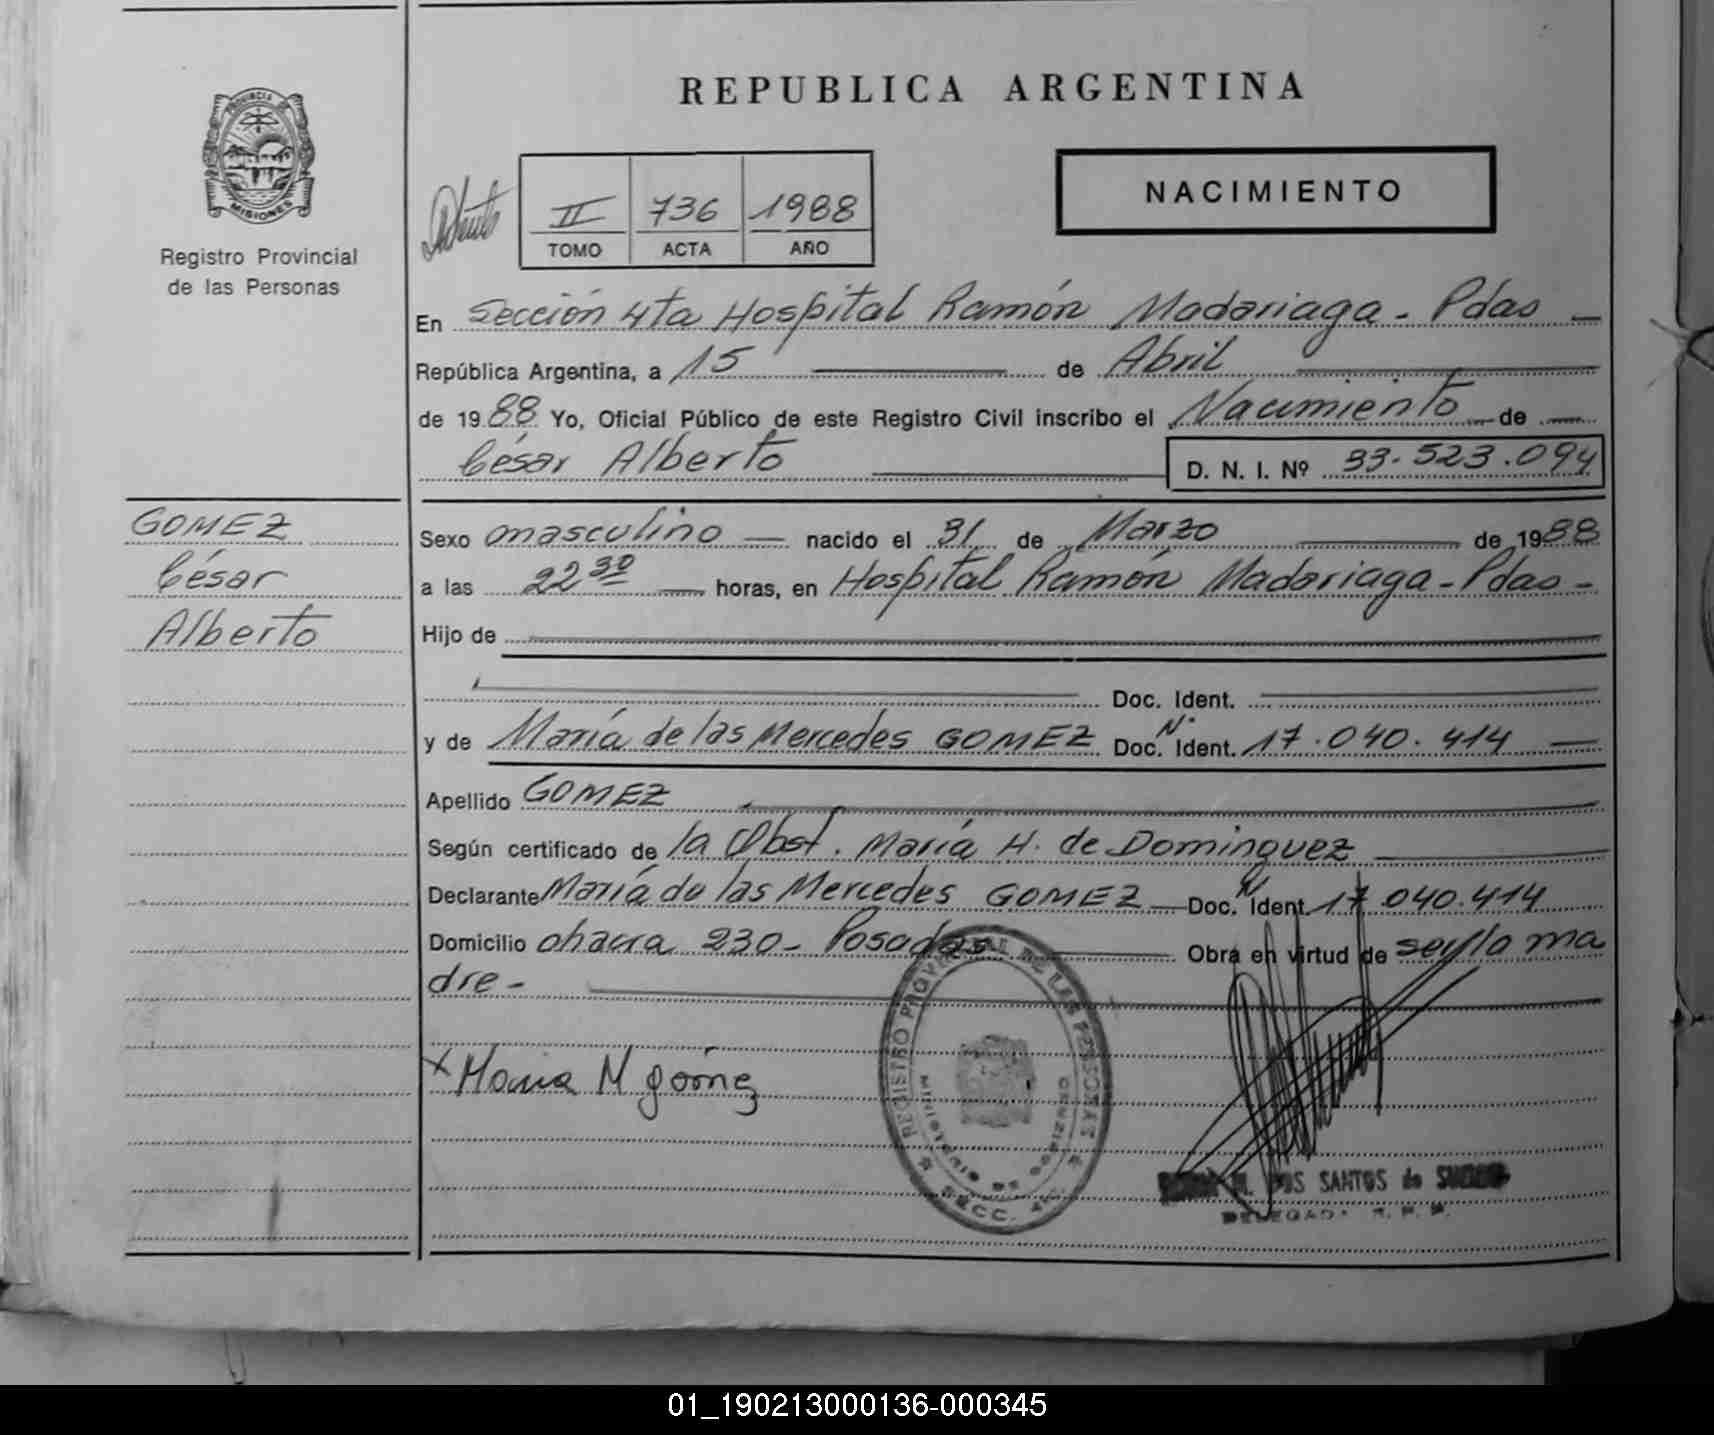 REPUBLICA ARGENTINA
PROVINCIA DE
MISIONES
Registro Provincial
de las Personas
II 736 1988
TOMO ACTA AÑO
NACIMIENTO
En Sección 4ta Hospital Ramón Madariaga - Pdas
República Argentina, a 15 de Abril
de 1988 Yo, Oficial Público de este Registro Civil inscribo el Nacimiento de
César Alberto D. N. I. Nº 33.523.094
GOMEZ
César
Alberto
Sexo masculino nacido el 31 de Marzo de 1988
a las 22 30 horas, en Hospital Ramón Madariaga - Pdas -
Hijo de
Doc. Ident.
y de María de las Mercedes GOMEZ Doc. Nº Ident. 17.040.414
Apellido GOMEZ
Según certificado de la Obst. María H. de Dominguez
Declarante María de las Mercedes GOMEZ Doc. Nº Ident. 17.040.414
Domicilio chacra 230 - Posadas Obra en virtud de sello ma
dre -
x Maria M gómez
REGISTRO PROVINCIAL DE LAS PERSONAS
MINISTERIO DE GOBIERNO
SECC. 4ta
M. DOS SANTOS de
DELEGADA R. P. P.
01_190213000136-000345